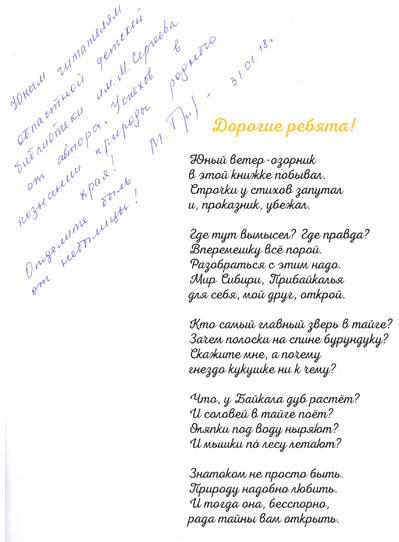 Юным читателям
областной детской
библиотеки им. М. Сергеева
от автора. Успехов в
познании природы родного
края!
Отделите быль
от небылицы!
31.01.18г.
Дорогие ребята!
Юный ветер-озорник
в этой книжке побывал.
Строчки у стихов запутал
и, проказник, убежал.
Где тут вымысел? Где правда?
Вперемешку всё порой.
Разобраться с этим надо.
Мир Сибири, Прибайкалья
для себя, мой друг, открой.
Кто самый главный зверь в тайге?
Зачем полоски на спине бурундуку?
Скажите мне, а почему
гнездо кукушке ни к чему?
Что, у Байкала дуб растёт?
И соловей в тайге поёт?
Оляпки под воду ныряют?
И мышки по́ лесу летают?
Знатоком не просто быть.
Природу надобно любить.
И тогда она, бесспорно,
рада тайны вам открыть.